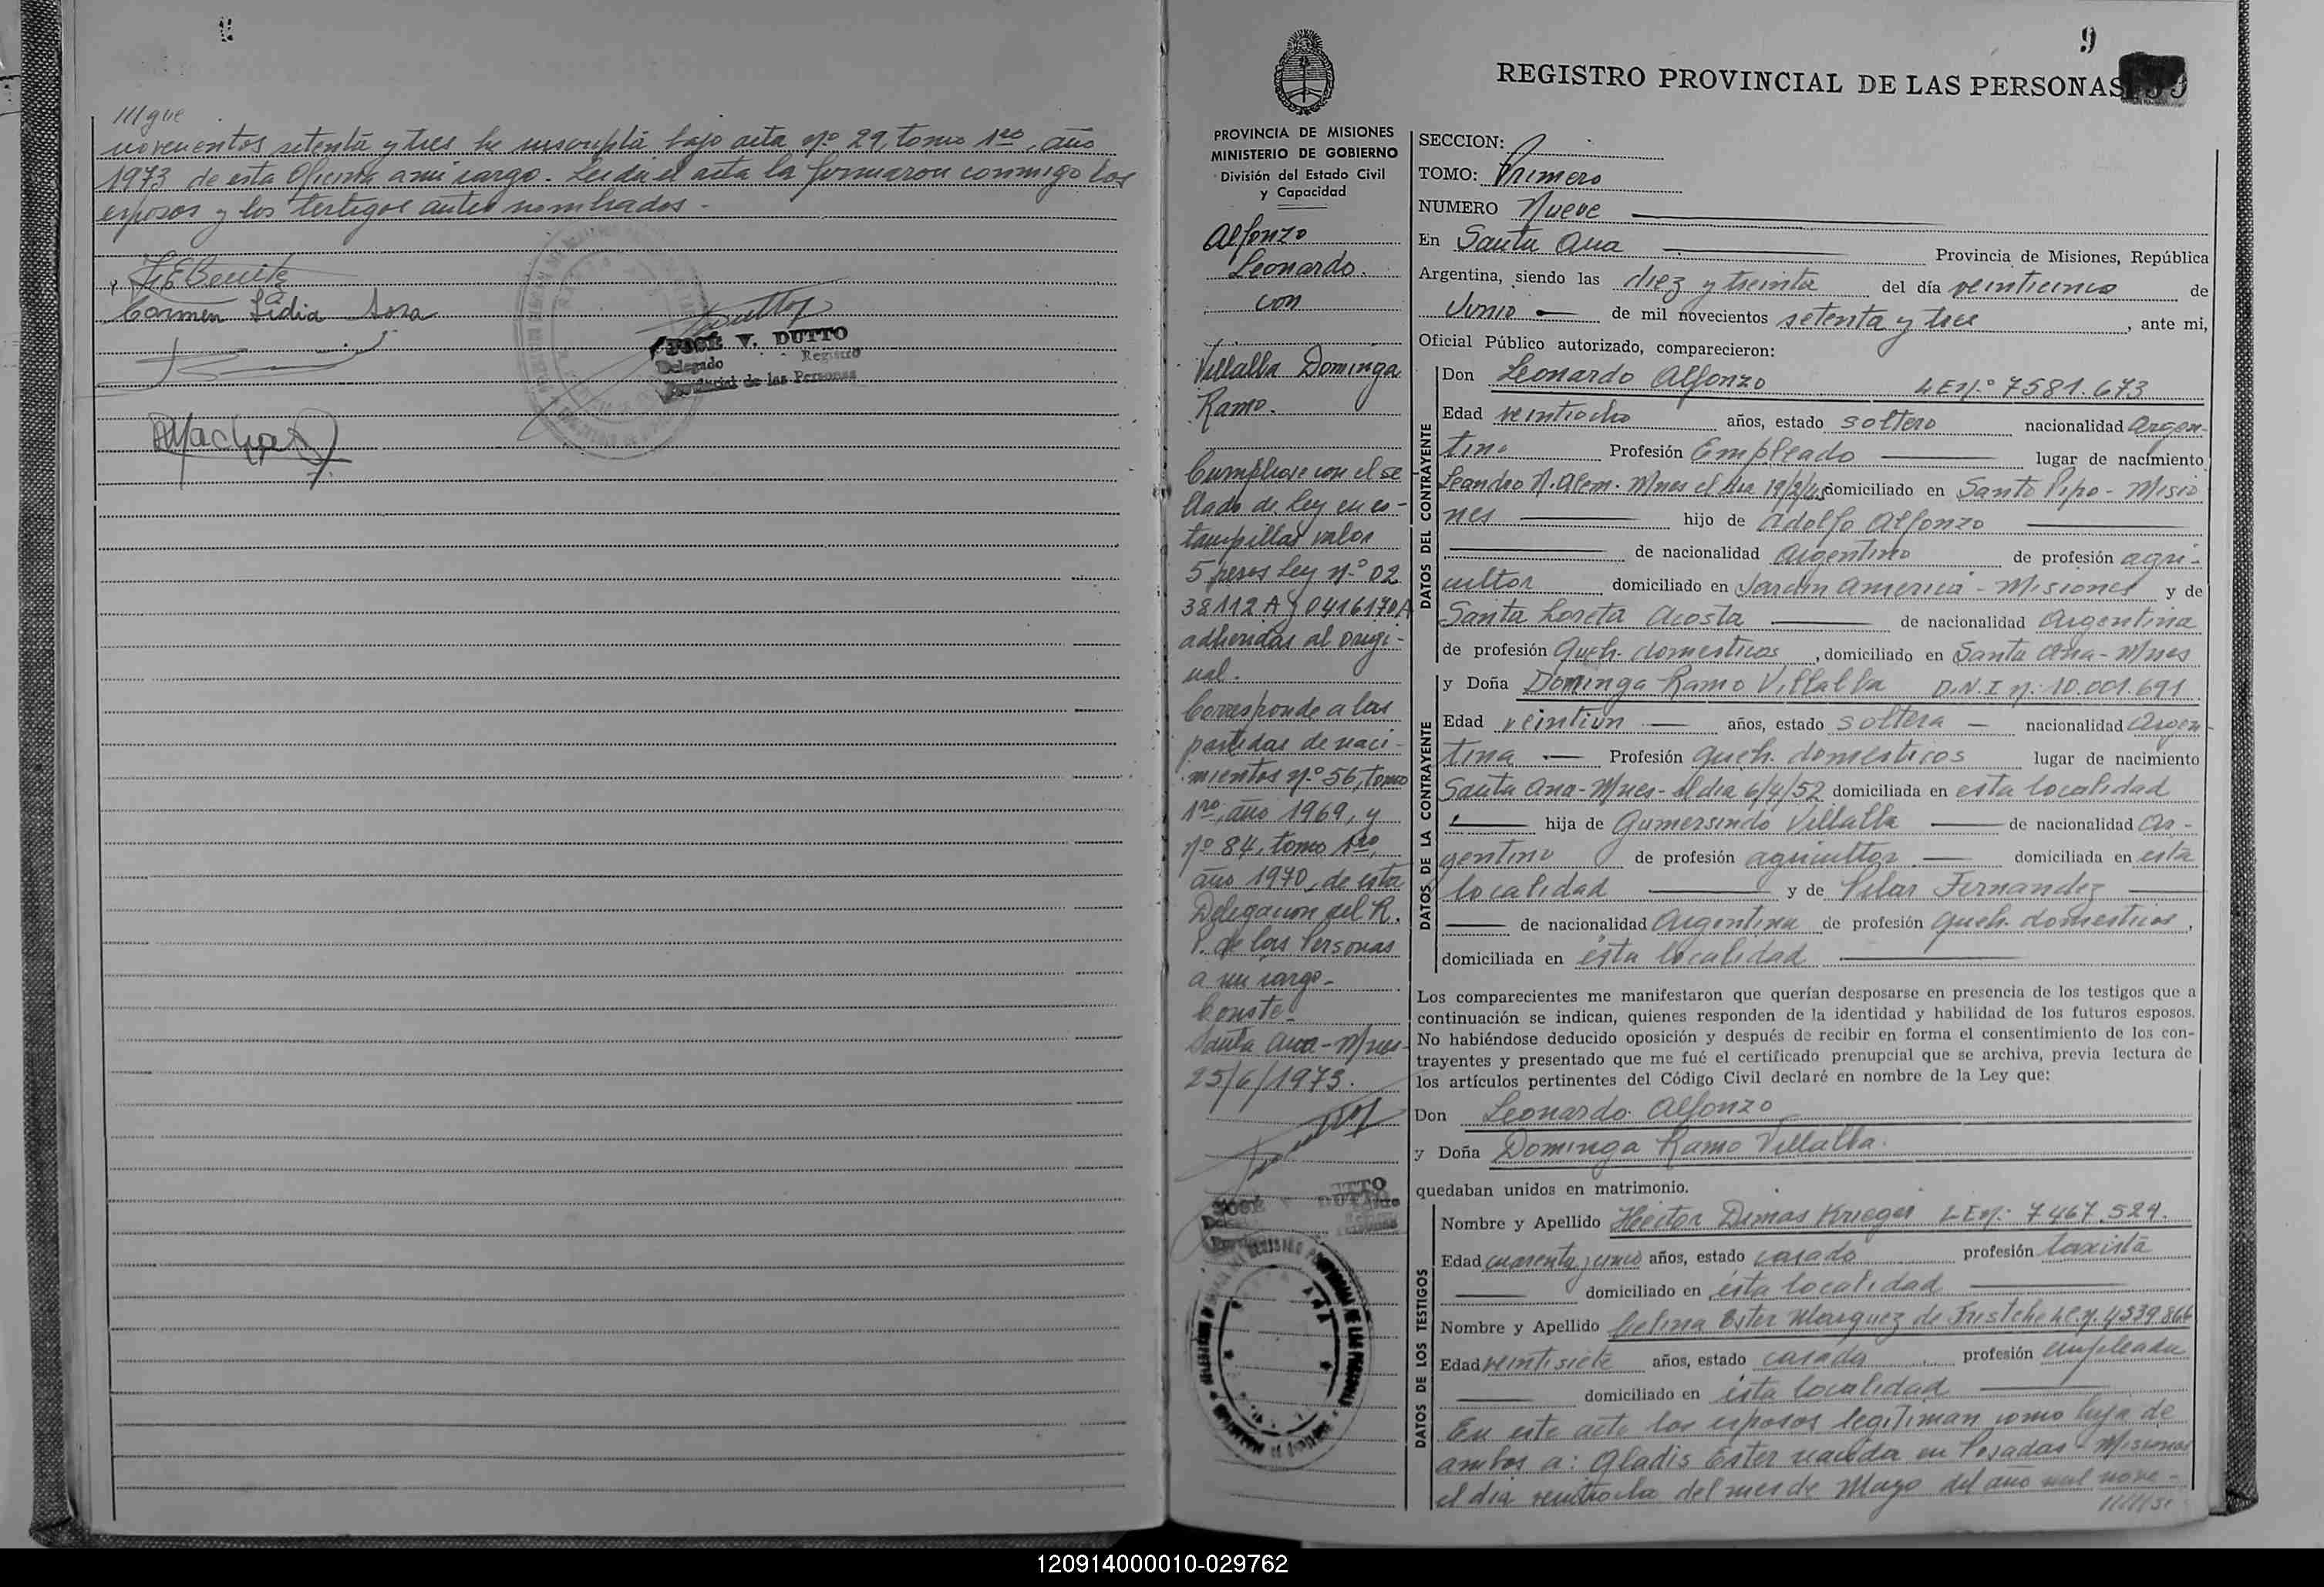 novecientos setenta y tres he inscripta bajo acta nº 29, tomo 1ro, año
1973 de esta Oficina a mi cargo. Leida el acta la firmaron conmigo los
esposos y los testigos antes nombrados.-
Carmen Lidia Sosa
JOSÉ V. DUTTO
Delegado Registro
Provincial de las Personas
9
REGISTRO PROVINCIAL DE LAS PERSONAS
PROVINCIA DE MISIONES
MINISTERIO DE GOBIERNO
División del Estado Civil
y Capacidad
Alfonzo
Leonardo.
con
Villalba Dominga
Ramo.
Cumplese con el se
llado de Ley en es-
tampillas valor
5 pesos Ley nº 02
38112 A y 0416170A
adheridas al origi-
nal.
Corresponde a las
partidas de naci-
mientos nº 56, tomo
1ro, año 1969, y
nº 84, tomo 1ro,
año 1970, de esta
Delegacion del R.
P. de las Personas
a mi cargo-
Conste-
Santa Ana-Mnes-
25/6/1973.
SECCION:
TOMO: Primero
NUMERO Nueve
En Santa Ana Provincia de Misiones, República
Argentina, siendo las diez y treinta del día veinticinco de
Junio de mil novecientos setenta y tres, ante mi,
Oficial Público autorizado, comparecieron:
DATOS DEL CONTRAYENTE
Don Leonardo Alfonzo L.E.nº 7581.673
Edad veintiocho años, estado soltero nacionalidad Argen-
tino Profesión Empleado lugar de nacimiento
Leandro N. Alem. Mnes el dia 19/2/45 domiciliado en Santo Pipo - Misio
nes hijo de Adolfo Alfonzo
de nacionalidad Argentino de profesión agri-
cultor domiciliado en Jardin America - Misiones y de
Santa Loreta Acosta de nacionalidad Argentina
de profesión Queh. domesticos, domiciliado en Santa Ana-Mnes
DATOS DE LA CONTRAYENTE
y Doña Dominga Ramo Villalba D.N.I nº: 10.001.691
Edad veintiun años, estado soltera nacionalidad Argen-
tina Profesión queh. domesticos lugar de nacimiento
Santa Ana-Mnes- el dia 6/4/52 domiciliada en esta localidad
hija de Gumersindo Villalba de nacionalidad Ar-
gentino de profesión agricultor domiciliada en esta
localidad y de Pilar Fernandez
de nacionalidad Argentina de profesión queh. domesticos,
domiciliada en esta localidad
Los comparecientes me manifestaron que querían desposarse en presencia de los testigos que a
continuación se indican, quienes responden de la identidad y habilidad de los futuros esposos.
No habiéndose deducido oposición y después de recibir en forma el consentimiento de los con-
trayentes y presentado que me fué el certificado prenupcial que se archiva, previa lectura de
los artículos pertinentes del Código Civil declaré en nombre de la Ley que:
Don Leonardo Alfonzo
y Doña Dominga Ramo Villalba.
quedaban unidos en matrimonio.
DATOS DE LOS TESTIGOS
Nombre y Apellido Hector Dimas Krieger L.E.nº: 7467.529.
Edad cuarenta y uno años, estado casado profesión taxista
domiciliado en esta localidad
Nombre y Apellido Celina Ester Marquez de
Edad veintisiete años, estado casada profesión empleada
domiciliado en esta localidad
En este acto los esposos legitiman como hija de
ambos a: Gladis Ester nacida en Posadas - Misiones
el dia veintiocho del mes de Mayo del año mil nove-
120914000010-029762